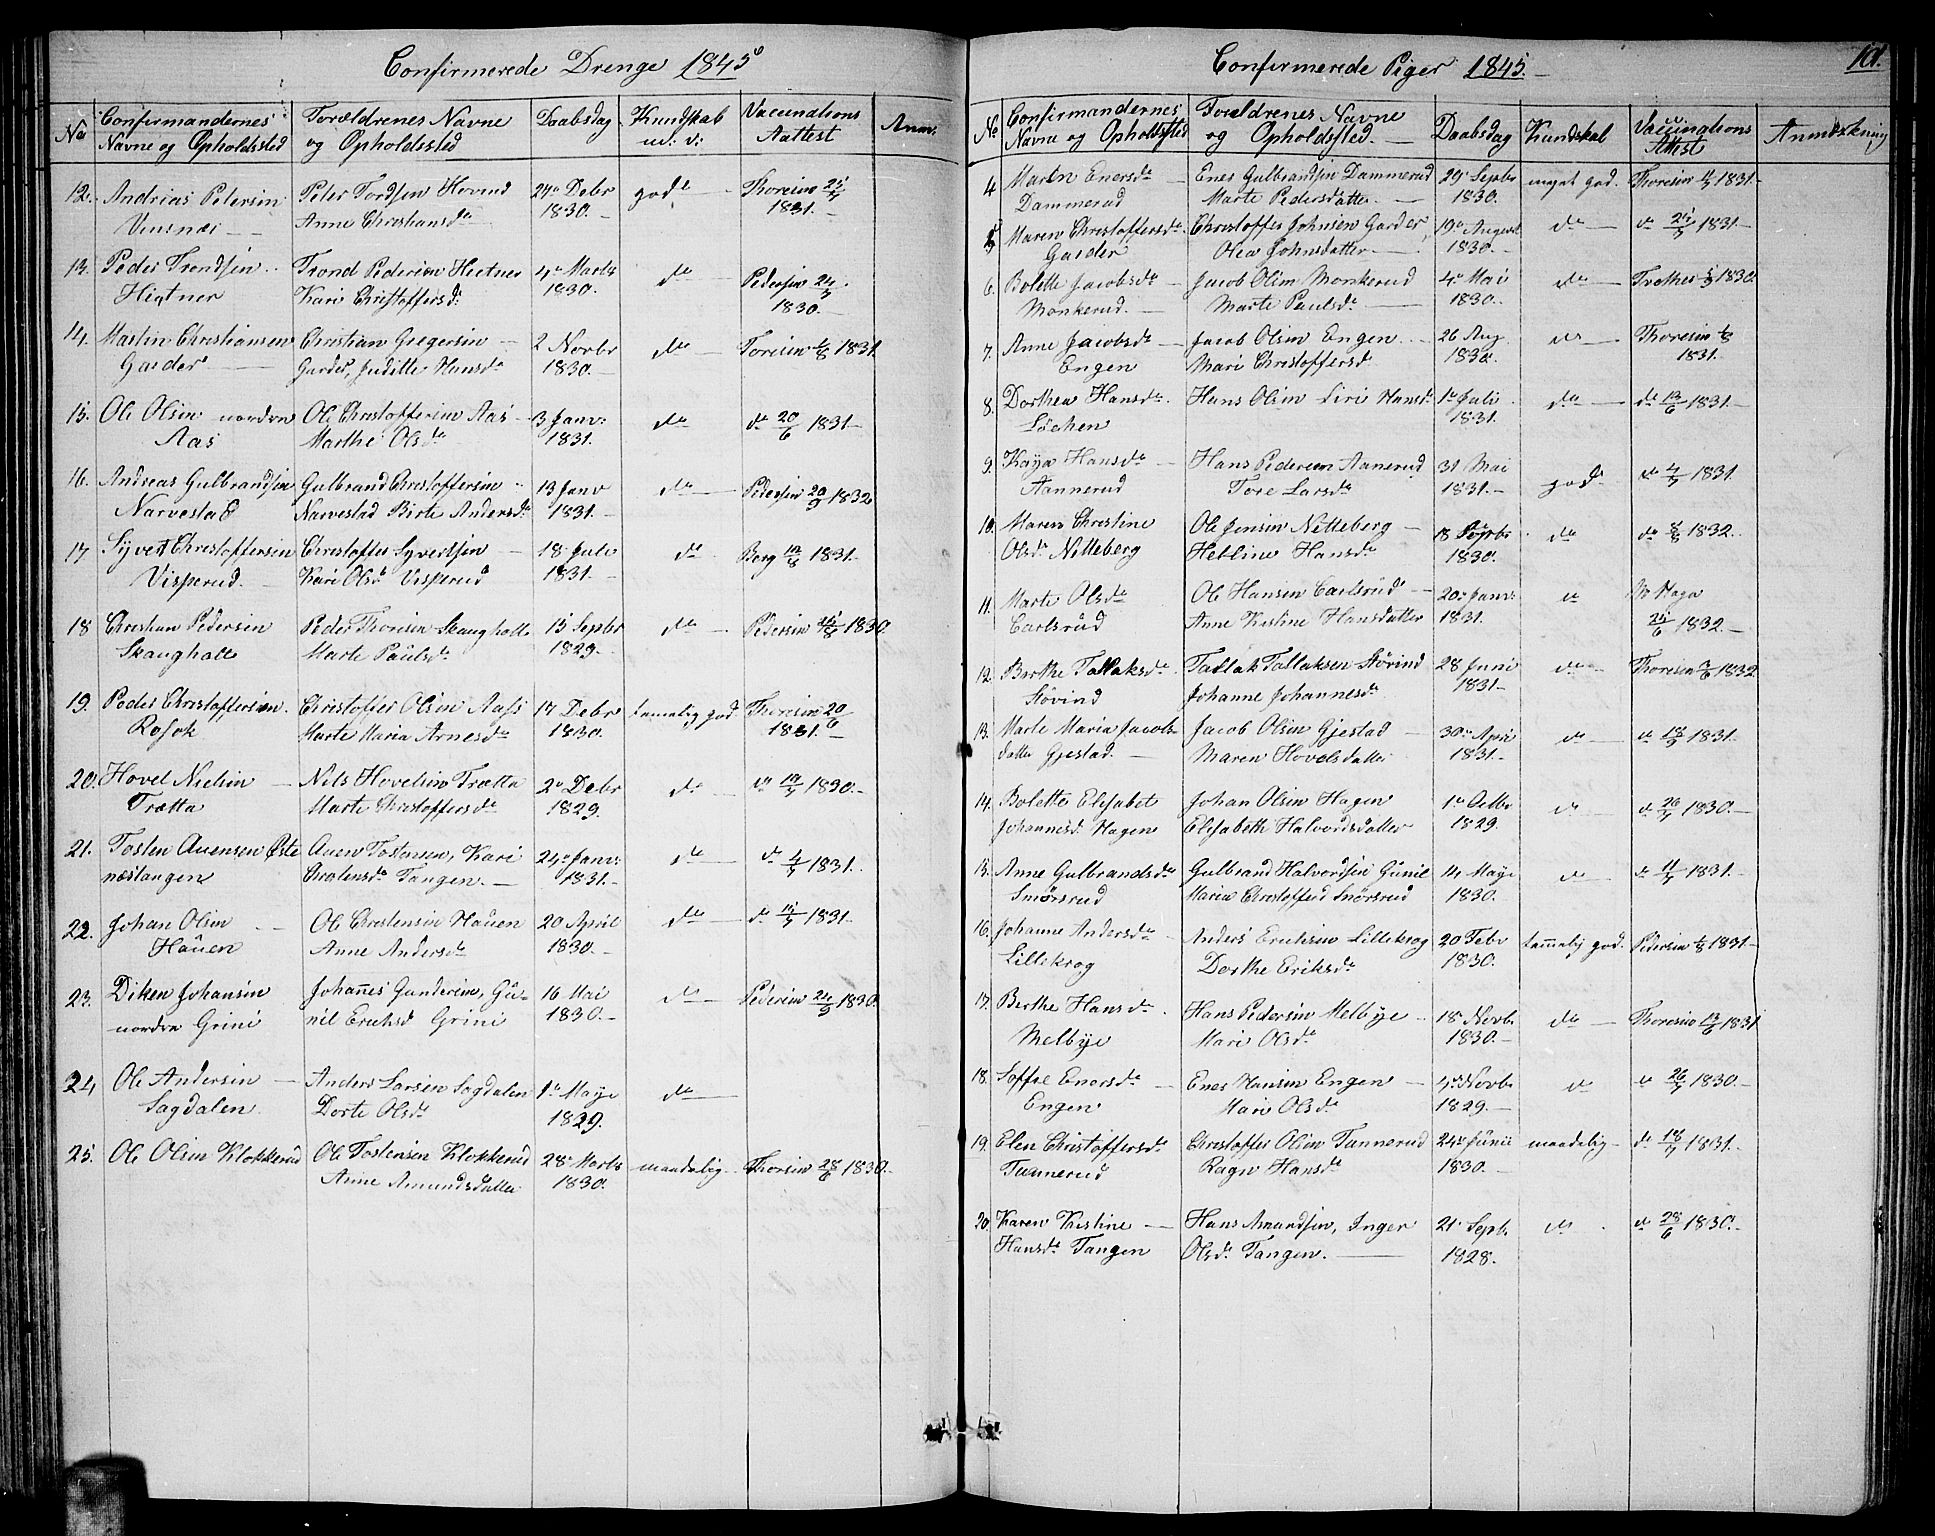 Confirmerede Drenge 1845
No
Confirmandernes
Navne og Opholdssted
Forældrenes Navne
og Opholdssted
Daabsdag
Kundskab
Vaccinations
Aattest
Anm:
12. Andrias Petersen
Peter Tordsen Hovind
Anne Christiansda
27de Debr
1830.
god
Thoresen
1831.
13. Peder Trondsen
Higtner
Trond Pedersen Higtner
Kari Christoffersd
4de Marts
1830.
do
Pedersen 24/7
1830.
14. Martin Christiansen
Garder
Christian Gregersen
Garder, Juditte Hansda
2 Novbr
1830.
do
Toresen 1/8 1831
15. Ole Olsen nordre
Aas
Ole Christoffersen Aas
Marthe Olsda
3 Janv:
1831.
do
do 20/6 1831
16. Andreas Gulbrandsen
Narvestad
Gulbrand Christoffersen
Narvestad Birte Andersda
13 Janv
1831.
do
Pedersen 20/9 1832
17 Syvert Christoffersen
Visperud.
Christoffer Syvertsen
Kari Olsd Visperud
18 Juli
1831.
do
Berg 1831.
18 Christian Pedersen
Skanghalle
Peder Thoresen Skanghalle
Marte Paulsda
15 Septbr
1829.
do
Pedersen 1830.
19. Peder Christoffersen.
Rosok
Christoffer Olsen Aass
Marte Maria Arnesda
17 Debr
1830.
temmelig god
Thoresen 20/6
1831.
20. Hovel Nielsen
Trætta
Nils Hovelsen Trætta
Marte Christoffersda
2de Debr
1829.
do
do 1830.
21. Tosten Auensen Øste
næstangen
Auen Tostensen, Kari
Tangen.
24de Janv:
1831.
do
do 4/7 1831.
22. Johan Olsen
Hauen
Ole Christensen Hauen
Anne Andersda
20 April
1830.
do
do 1831.
23. Diken Johansen
nordre Grini
Johannes Gundersen, Gu-
nil Eriksd Grini
16 Mai
1830.
do
Pedersen 1830.
24 Ole Andersen
Sagdalen
Anders Larsen Sagdalen
Dorte Olsda
1de Maye
1829.
do
25. Ole Olsen Klokkerud
Ole Tostensen Klokkerud
Anne Amundsdatter
28de Marts
1830.
maadelig
Thorsen 28/6 1830.
Confirmerede Piger 1845.
101.
No
Confirmandernes
Navne og Opholdssted
Forældrenes Navne
og Opholdssted.
Daabsdag
Kundskab
Vaccinations
Attest
Anmærkning
4 Maren Enersda
Dammerud
Ener Gulbrandsen Dammerud
Marte Pedersdatter
29de Septbr
1830.
meget god.
Thoresen 1831.
5 Maren Christoffersda
Garder
Christoffer Johnsen Garder
Olea Johnsdatter
19de August
1830.
do
do 1831.
6. Bolette Jacobsda
Monkerud.
Jacob Olsen Monkerud
Marte Paulsda
4de Mai
1830.
do
1830.
7. Anne Jacobsda
Engen
Jacob Olsen Engen
Mari Christoffersd
26 Aug
1830.
do
Thoresen 1/8
1831.
8. Dorthea Hansda
Løchen
Hans Olsen Siri Hansda
1de Juli
1831.
do
do 13/6 1831.
9. Kaya Hansda
Aannerud
Hans Pedersen Aanerud
Tore Larsda
31 Mai
1831.
god
do 4/7 1831.
10. Maren Christine
Olsd Nitteberg
Ole Jensen Netteberg
Helline Hansda
18 Septbr
1830.
do
do 8/8 1832.
11. Marte Olsda
Carlsrud
Ole Hansen Carlsrud
Anne Kistine Hansdatter
20de Janv:
1831.
do
Haga
1832.
12. Berthe Tallaksda
Støvind
Tallak Tallaksen Støvind
Johanne Johannesda
28 Juni
1831
do
Thoresen 1832
13. Marte Maria Jacobs-
datter Gjestad.
Jacob Olsen Gjestad
Maren Hovelsdatter
30de April
1831.
do
do 1831.
14. Bolette Elisabet
Johannesd. Hagen
Johan Olsen Hagen
Elisabeth Halvordsdatter
1de Octbr
1829.
do
do 26/7 1830.
15. Anne Gulbrandsda
Smørsrud
Gulbrand Halvordsen Gunil
Maria Christoffersd Snørsrud
14 Maye
1830.
do
do 1831.
16. Johanne Andersda
Lillekrog
Anders Erichsen Lillekrog
Dorthe Eriksda
20 Febr
1830.
temmelig god.
Pedersen 1831.
17. Berthe Hansda
Melbye
Hans Pedersen Melbye
Mari Olsda
18de Novbr
1830.
do
Thoresen 13/6 1831
18. Soffie Enersda
Engen
Ener Hansen Engen
Mari Olsda
4de Novbr
1829.
do
do 26/7 1830.
19. Elen Christoffersda
Tannerud
Christoffer Olsen Tannerud
Ragn Hansda
24de Junie
1830.
maadelig
do 18/7 1831.
20. Karen Kistine
Hansda Tangen
Hans Amundsen, Inger
Olsda Tangen.
21. Septbr
1828.
do
do 28/6 1830.